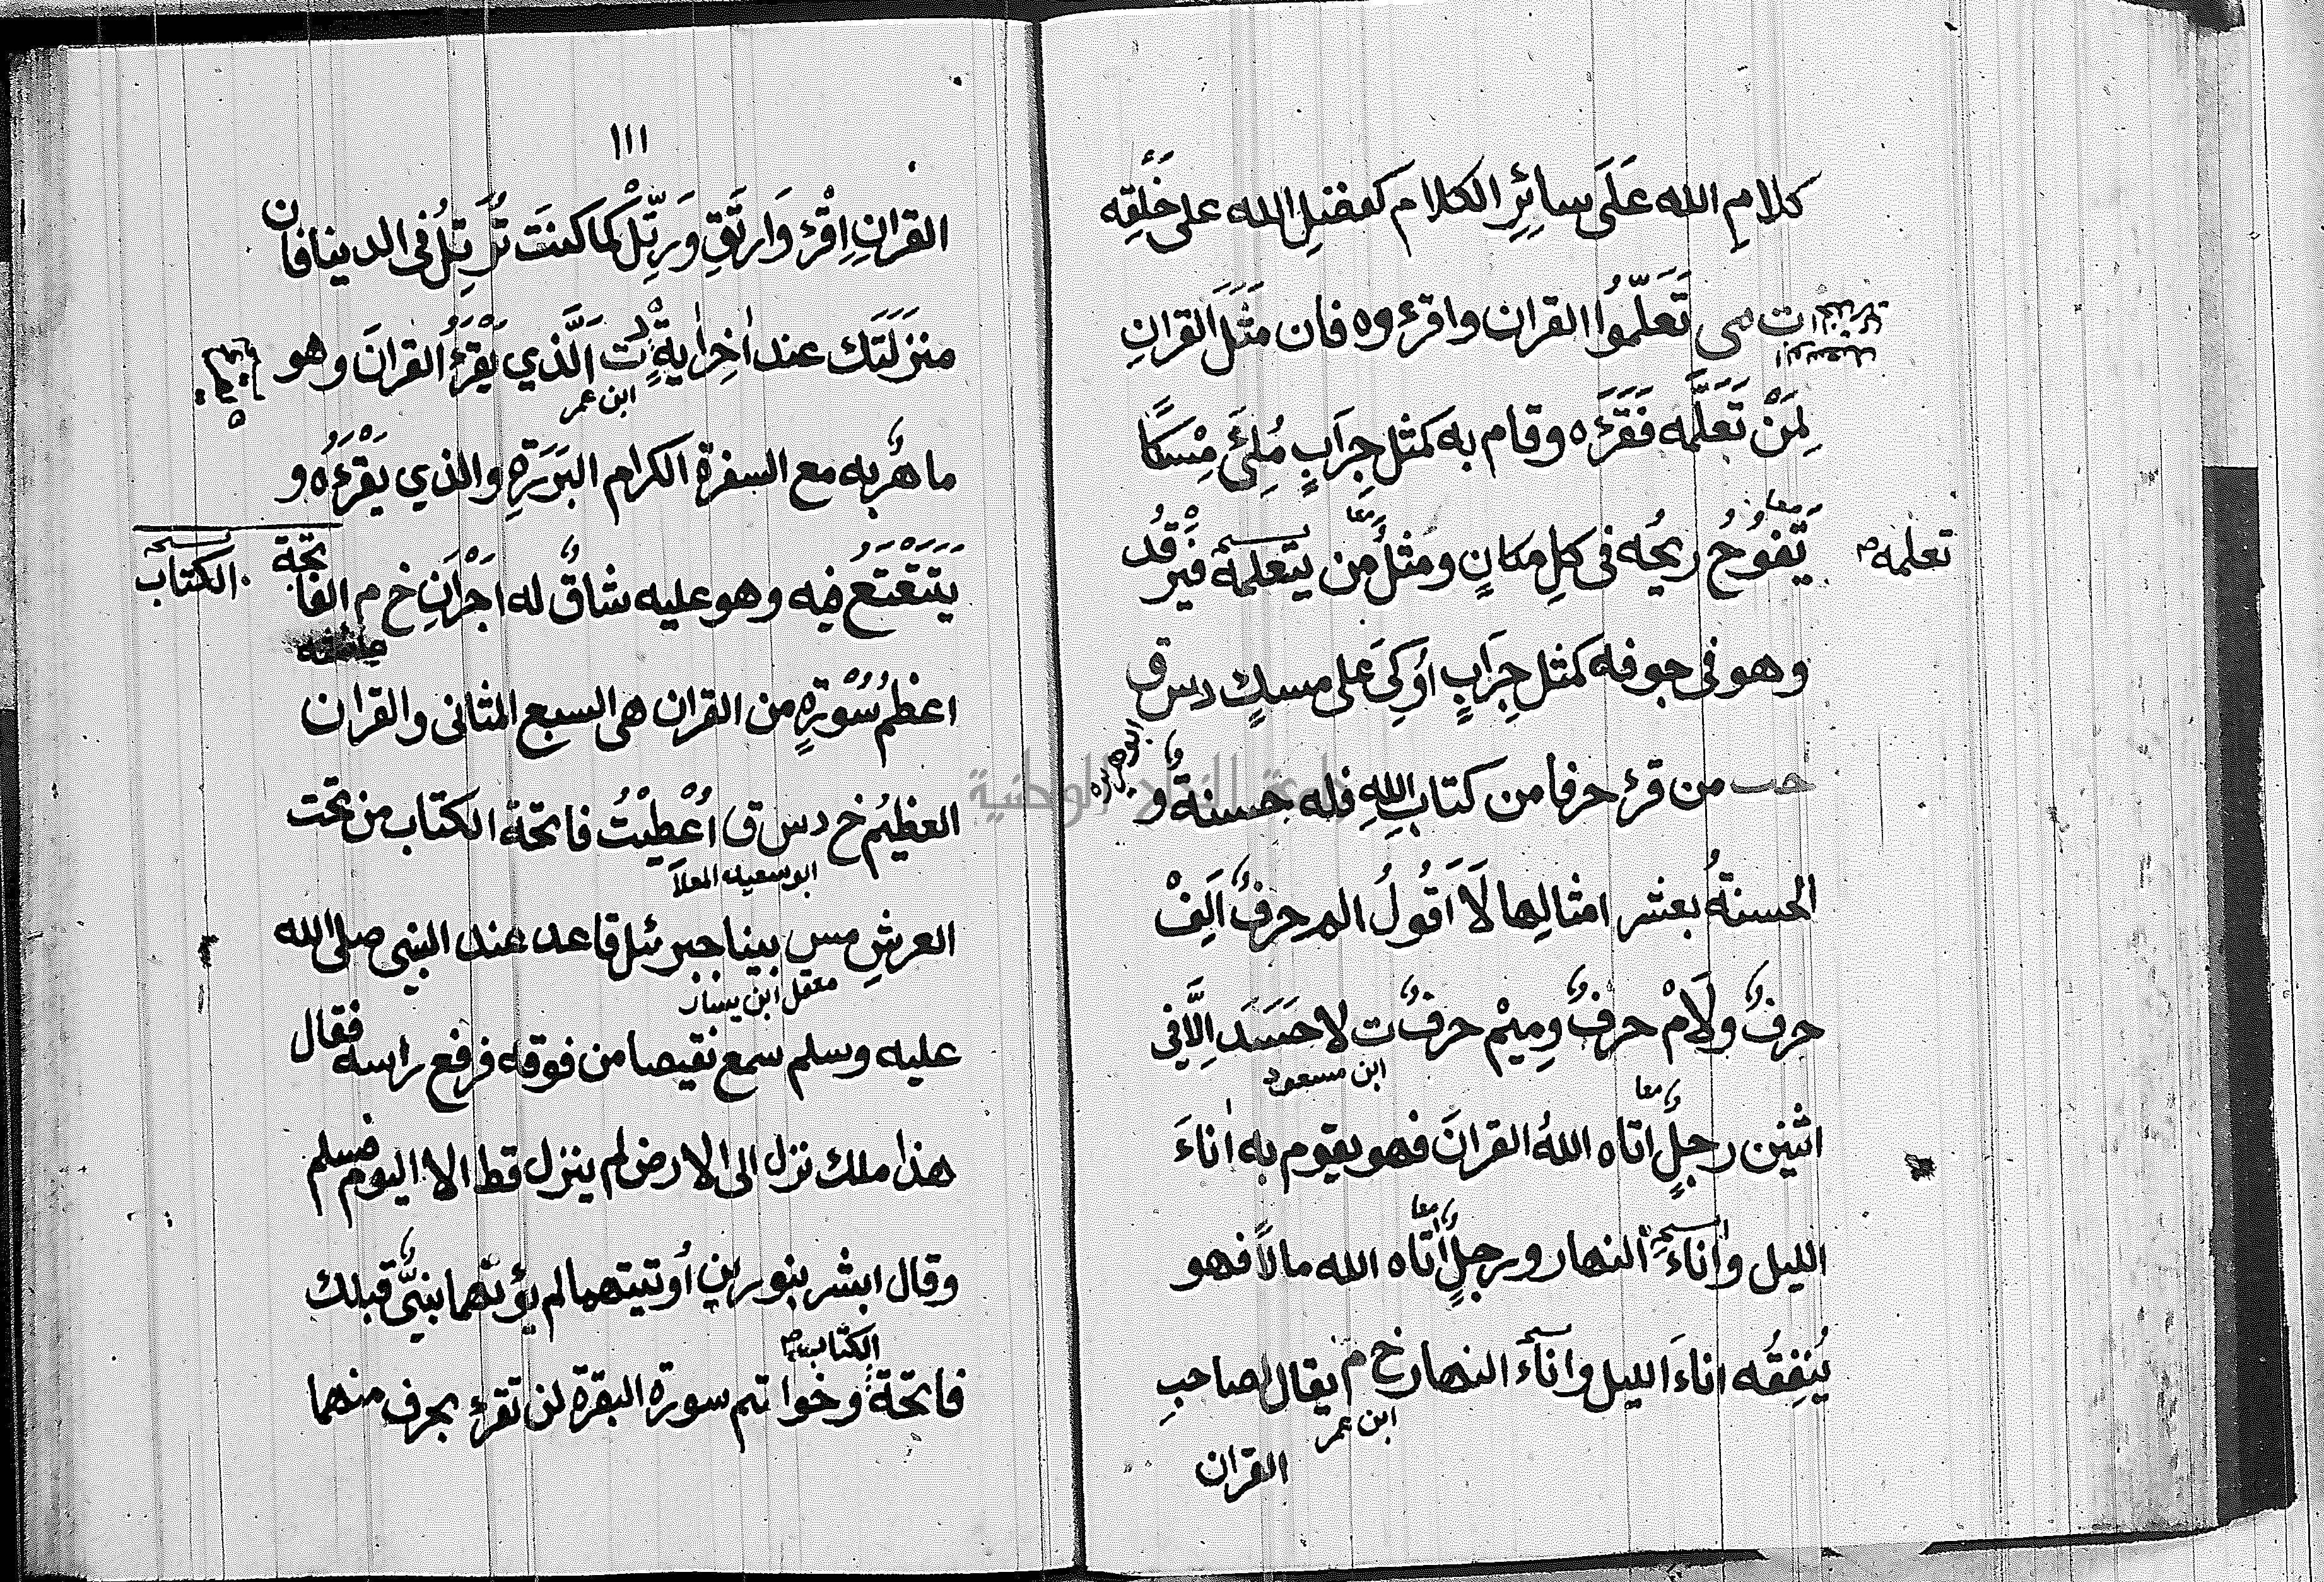 كلامِ الله عَلَى سائِرِ الكلام كفضلِ الله على خَلْقِه
ت مى تَعَلَّمُوا القران واقرءوه فان مَثَلَ القرانِ
لِمَنْ تَعَلَّمَه فَقَرَءَه وقام به كمثل جِرَابٍ مُلِئَ مِسْكًا
معا
يَفُوحُ رِيحُه فى كلِ مكانٍ ومَثَلُ مَن يتعلمه فيَرْقُد
معا
تعلمه
وهو فى جوفه كمثل جِرَابٍ أُوكِىَ على مسكٍ د س ق
ابوهريره
حب من قرء حرفا من كتاب اللهِ فله حسنةٌ و
الحسنةُ بعشر امثالِها لَا اَقُولُ الم حرفٌ اَلِفْ
حرفٌ ولَامْ حرفٌ ومِيمْ حرفٌ ت لا حَسَدَ اِلَّا فِي
ابن مسعود
معا
اثنين رجلٍ اتاه اللهُ القرانَ فهو يقوم به اناءَ
معا
الليل وأناءَ النهار ورجلٍ اتاه الله مالًا فهو
يُنفِقُه اناءَ الليل واناءَ النهار خ م يقال لصاحبِ
ابن عمر
القران
١١١
القرانِ اِقْرَء وَارتَقِ وَرَتِّلْ كما كنتَ تُرَتِّلُ فى الدينا فان
منزلَتَك عند اٰخِرِ اٰيةٍ د ت اَلَّذي يَقْرَءُ القرانَ وهو
ابن عمر
ماهرٌ به مع السفرة الكرام البَرَرَةِ والذي يَقْرَءُه و
يَتَتَعْتَعُ فيه وهو عليه شاقٌ له اَجْرَانِ خ م الفاتحة
عائشه
الكتاب
اعظمُ سُورَةٍ من القران هى السبع المثانى والقران
العظيمُ خ د س ق اُعْطِيْتُ فاتحة الكتاب من تحت
ابو سعيد المعلا
العرشِ مس بينا جبرئل قاعد عند النبى صلى الله
معقل ابن يسار
عليه وسلم سمع نقيضا من فوقه فرفع راسه فقال
هذا ملك نزل الى الارض لم ينزل قط الا اليوم فسلم
وقال ابشر بنورين أُوتيتهما لم يؤتهما نبىٌّ قبلك
الكتاب
فاتحة وخواتم سورة البقرة لن تقرء بحرف منهما